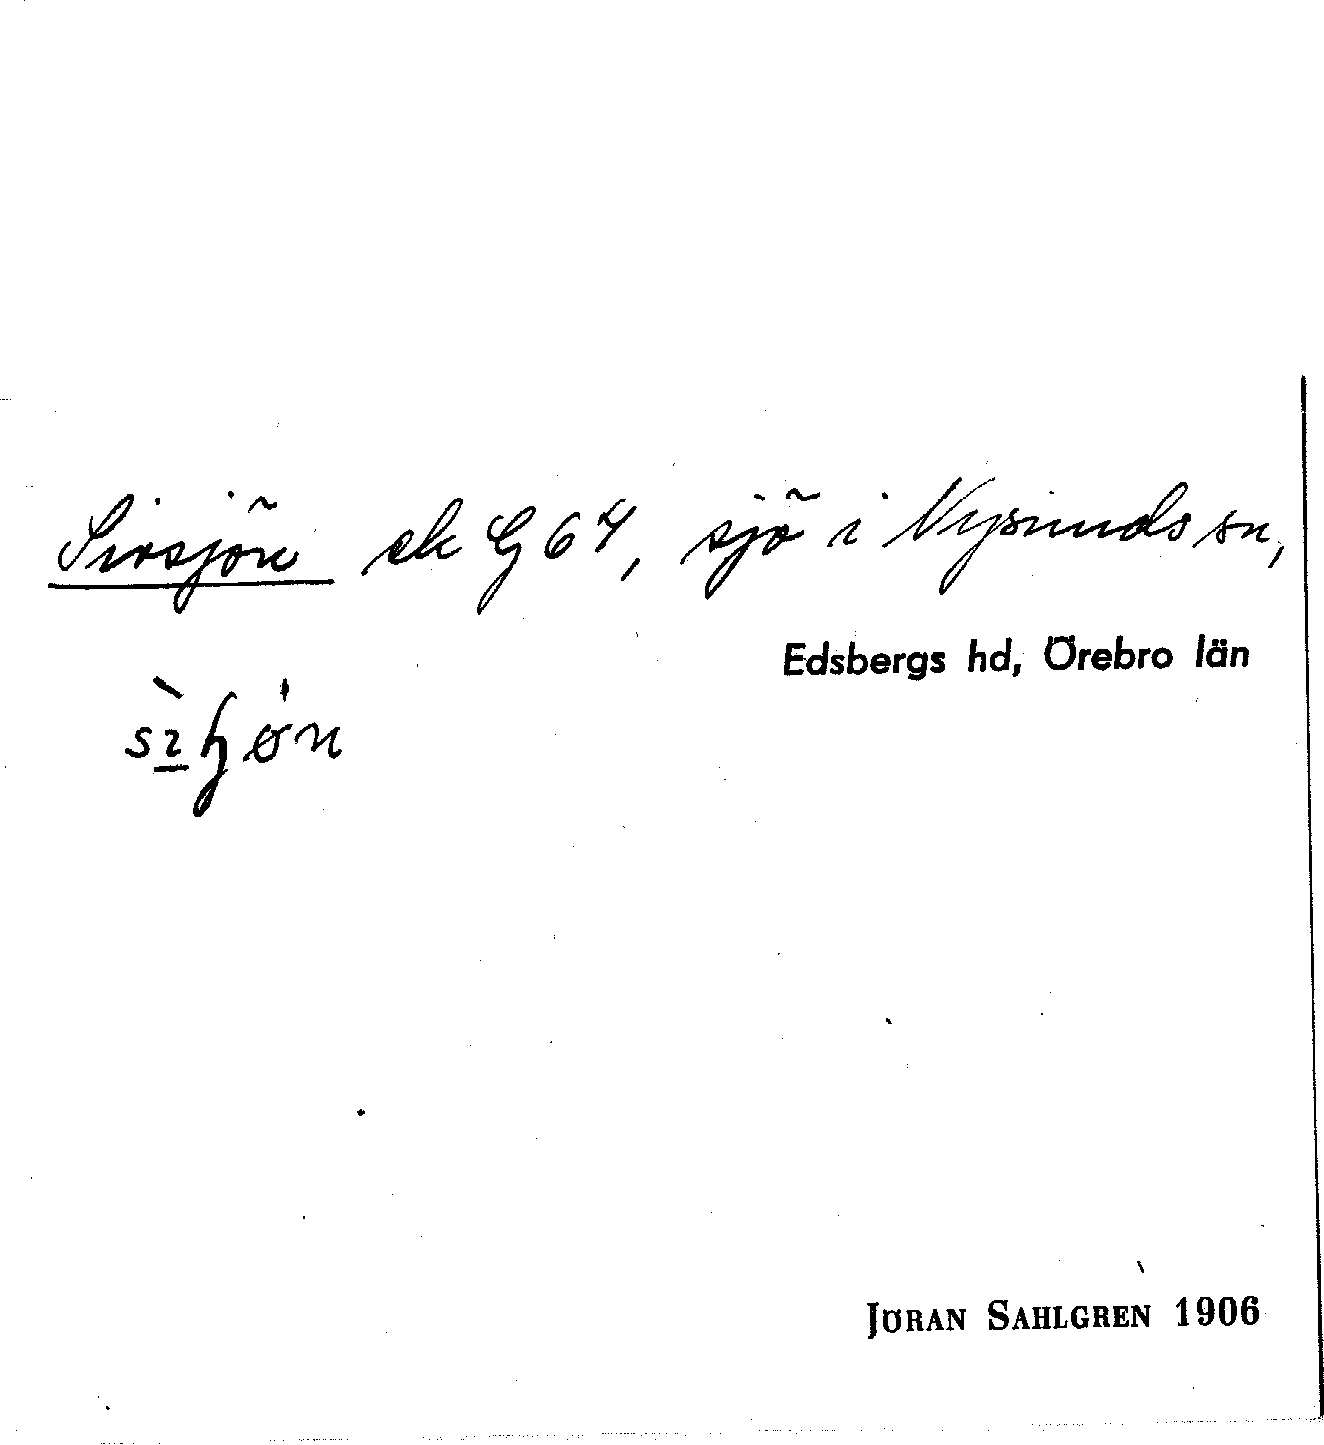 Sirsjön ek G 64, sjö i Nysunds sn,
Edsbergs hd, Örebro län
JÖRAN SAHLGREN 1906